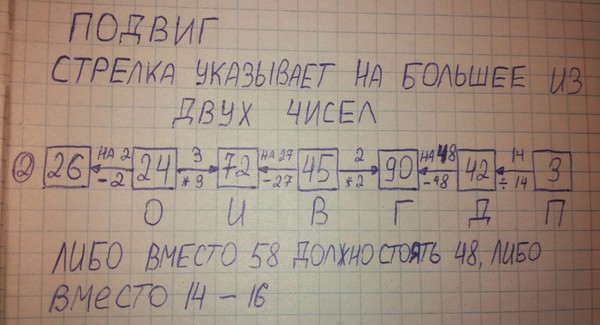 ПОДВИГ
СТРЕЛКА УКАЗЫВАЕТ НА БОЛЬШЕЕ ИЗ
ДВУХ ЧИСЕЛ
НА 2 3 НА 27 2 НА 48 14
② 26 24 72 45 90 42 3
-2 *3 -27 *2 -48 ÷14
О И В Г Д П
ЛИБО ВМЕСТО 58 ДОЛЖНО СТОЯТЬ 48, ЛИБО
ВМЕСТО 14 – 16